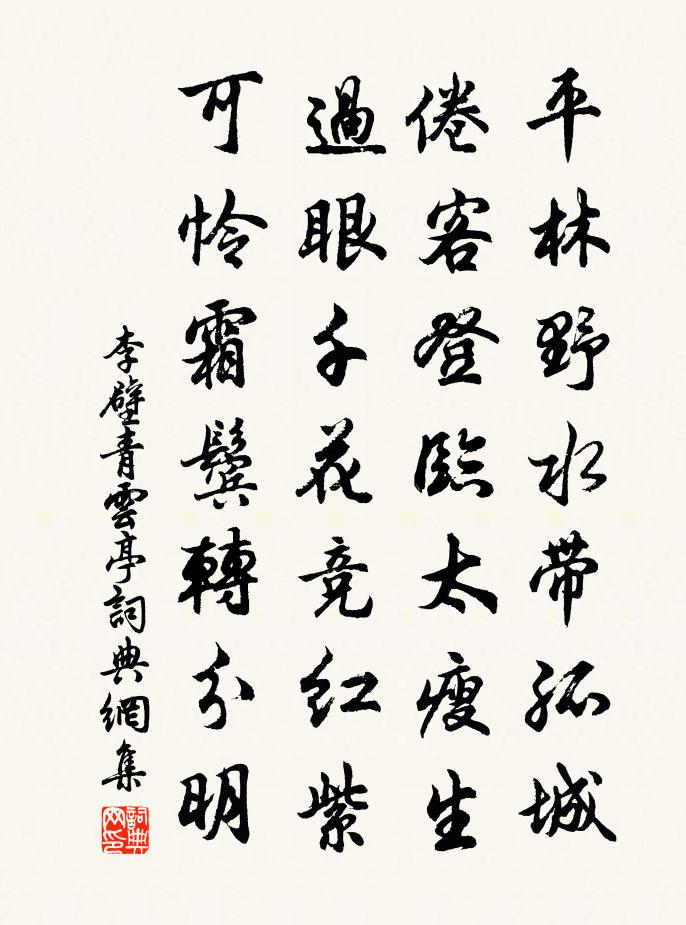 平林野水带孤城
倦客登临太瘦生
過眼千花竞红紫
可怜霜鬓轉分明
李壁青雲亭詞典網集
詞典网印